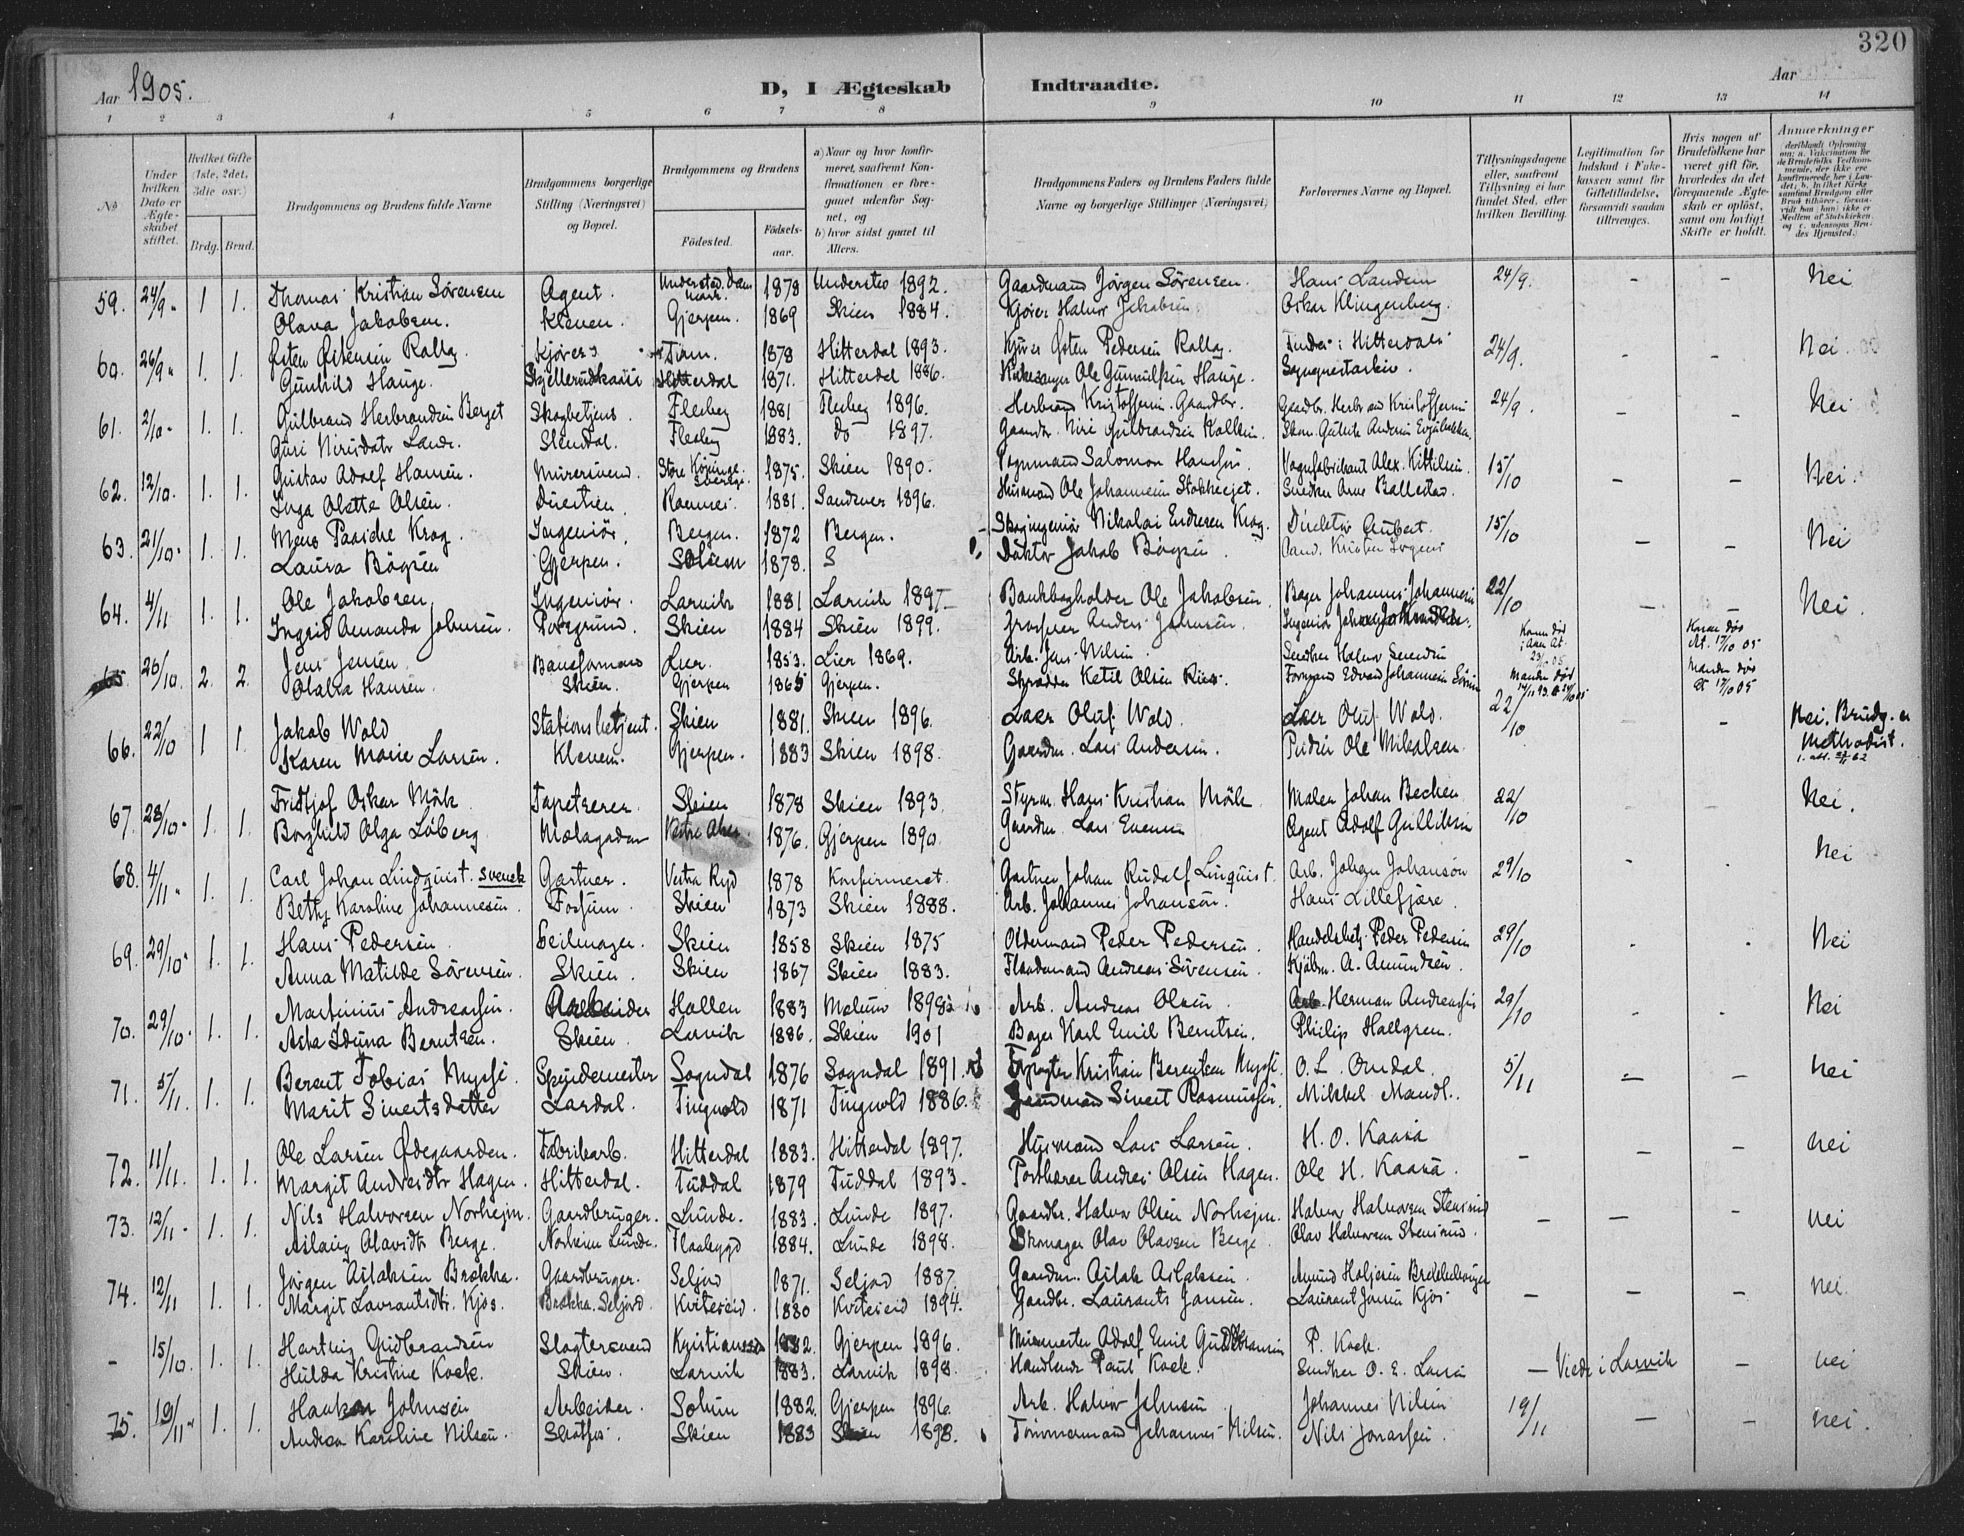 320
Aar 1905.
D, I Ægteskab Indtraadte.
Aar
1 2 3 4 5 6 7 8 9 10 11 12 13 14
No
Under hvilken Dato er Ægteskabet stiftet.
Hvilket Gifte (1ste, 2det, 3die osv.)
Brdg. Brud.
Brudgommens og Brudens fulde Navne
Brudgommens borgerlige Stilling (Næringsvei) og Bopæl.
Brudgommens og Brudens
Födested. Födselsaar.
a) Naar og hvor konfirmeret, saafremt Konfirmationen er foregaaet udenfor Sognet, og
b) hvor sidst gaaet til Alters.
Brudgommens Faders og Brudens Faders fulde Navne og borgerlige Stillinger (Næringsvei)
Forlovernes Navne og Bopæl.
Tillysningsdagene eller, saafremt Tillysning ei har fundet Sted, efter hvilken Bevilling.
Legitimation for Indskud i Enkekassen samt for Giftetilladelse, forsaavidt saadan tiltrænges.
Hvis nogen af Brudefolkene har været gift før, hvorledes da det foregaaende Ægteskab er opløst, samt om lovligt Skifte er holdt.
Anmærkninger
59. 24/9 1 1. Thomas Kristian Sörensen Agent. Understed Danmark 1879 Understed 1892. Gaardmand Jörgen Sörensen. Hans Landem 24/9. – – Nei
Olava Jakobsen. Kleven. Gjerpen. 1869 Skien 1884. Kjörer Halvor Jakobsen Oskar Klingenberg.
60. 26/9 1. 1. Östen Östensen Rollag Kjörer Tinn. 1878 Hitterdal 1893. Kjörer Östen Pedersen Rollag. 24/9. – – Nei
Gunhild Hauge. Hitterdal 1871. Hitterdal 1886. Kirkesanger Ole Gunnulfsen Hauge.
61. 2/10 1. 1. Gulbrand Herbrandsen Berget Skogbetjent. Flesberg 1881 Flesberg 1896. Herbrand Kristoffersen. Gaardbr. Gaardbr. Herbrand Kristoffersen 24/9. – – Nei
Guri Nirisdatr Lande. Slemdal. Flesberg 1883. do 1897.
62. 12/10. 1. 1. Gustav Adolf Hansen. Murersvend. Store Köpinge Sverige 1875. Skien 1890. Salomon Hansen. Vognfabrikant Alex. Kittilsen. 15/10 – – Nei.
Inga Olette Olsen. Duestien. 1881. Sandsver 1896. Husmand Ole Johannesen Snedker Arne Ballestad.
63. 21/10. 1. 1. Mens Paasche Krog Ingeniör. Bergen. 1872 Bergen. Skogingeniör Nikolai Endresen Krog. Direktör Aubert. 15/10 – – Nei
Laura Bögsen Gjerpen. Skien 1878. S Doktor Jakob Bögsen.
64. 4/11 1. 1. Ole Jakobsen Ingeniör. Larvik 1881 Larvik 1897 Bankbogholder Ole Jakobsen. Bager Johannes Johannesen 22/10 – – Nei.
Ingrid Amanda Johnsen. Porsgrund. Skien 1884 Skien 1899. Anders Johnsen.
65 26/10. 2. 2. Jens Jensen. Lier. 1853. Lier 1869. Arb. Jens Nilsen
Olava Hansen. Skien. Gjerpen 1865 Gjerpen. Skrædder Ketil Olsen
66. 22/10 1 1. Jakob Wold Stationsbetjent. Skien 1881. Skien 1896. Læer Oluf Wold. Læer Oluf Wold. 22/10. – Nei. Brudg. er Methodist.
Karen Marie Larsen. Kleven. Gjerpen. 1883 Skien 1898. Gaardm. Lars Andersen. Ole Mikalsen.
67. 28/10. 1. 1. Fridtjof Oskar Mörk Tapetserer. Skien 1878 Skien 1893. Styrm. Hans Kristian Mörk Maler Johan Becken 22/10 Nei.
Borghild Olga Löberg Mælagadan Vestre Aker. 1876. Gjerpen 1890. Gaardm. Lars Evensen Agent Adolf Gulliksen
68. 4/11 1. 1. Carl Johan Lindquist. svensk Gartner. Vestra Ryd 1878 Konfirmeret. Gartner Johan Rudolf Linquist. Arb. Johan Johanson 29/10 Nei
Betty Karoline Johannesen. Fossum. Skien 1873 Skien 1888. Arb. Johannes Johansen. Hans Lillefjære.
69. 29/10 1. 1. Hans Pedersen Seilmager. Skien 1858 Skien 1875 Oldermand Peder Pedersen. Handelsbetj. Peder Pedersen 29/10 Nei
Anna Matilde Sörensen. Skien. Skien 1867 Skien 1883. Andreas Sörensen. Kjöbm. A. Amundsen.
70. 29/10. 1. 1. Martinius Andreassen. Arbeider Hollen 1883 Melum 1898 Arb. Andreas Olsen. Arb. Herman Andreassen 29/10 Nei
Asta Iduna Berntsen. Skien. Larvik 1886. Skien 1901 Bager Karl Emil Berntsen. Philip Hallgren.
71. 5/11. 1. 1. Berent Tobias Mysse. Spindemester Sogndal 1876 Sogndal 1891. Kristian Berentsen Mysse. O. L. Omdal. 5/11 – – Nei
Marit Sivertsdatter Lardal. Tingvold 1871 Tingvold 1886. Sivert Rasmussen. Mikkel Mandt.
72. 11/11. 1. 1. Ole Larsen Ödegaarden. Fabrikarb. Hitterdal 1883. Hitterdal 1897. Husmand Lars Larsen. H. O. Kaasa – – – Nei
Margit Andreasdtr Hagen. Hitterdal. Tuddal 1879 Tuddal 1893. Andreas Olsen Hagen. Ole H. Kaasa.
73. 12/11. 1. 1. Nils Halvorsen Norheim. Gaardbruger. Lunde. 1883. Lunde 1897. Gaardbr. Halvor Olsen Norheim. Halvor Halvorsen Stensrud – – – Nei
Aslaug Olavsdtr Berge. Norheim Lunde. Flaabygd 1884. Lunde 1898. Skomager Olav Olavsen Berge. Olav Halvorsen Stensrud.
74. 12/11 1. 1. Jörgen Aslaksen Brokka. Gaardbruger. Seljord 1871. Seljord 1887. Gaardm. Aslak Aslaksen. – – – Nei.
Margit Laurantsdtr. Kjos. Brokka. Seljord. Kviteseid. 1880 Kviteseid 1894. Gaardbr. Laurants Jansen. Laurant Jansen Kjos
– 15/10. 1. 1. Hartvig Gudbrandsen Slagtersvend Kristiansand 1882. Gjerpen 1896. Murmester Adolf Emil Gudbrandsen P. Kock. – Viede i Larvik – Nei
Hulda Kristine Kock. Skien. Larvik 1883. Larvik 1898. Handlende Paul Kock. Snedker O. E. Larsen
75. 19/11 1. 1. Haakon Johnsen Arbeider. Solum 1882. Gjerpen 1896. Arb. Halvor Johnsen Johannes Nilsen 19/11 – – Nei.
Andrea Karoline Nilsen. Skotfos. Skien 1883 Skien 1898. Tömmermand Johannes Nilsen. Nils Jonassen.